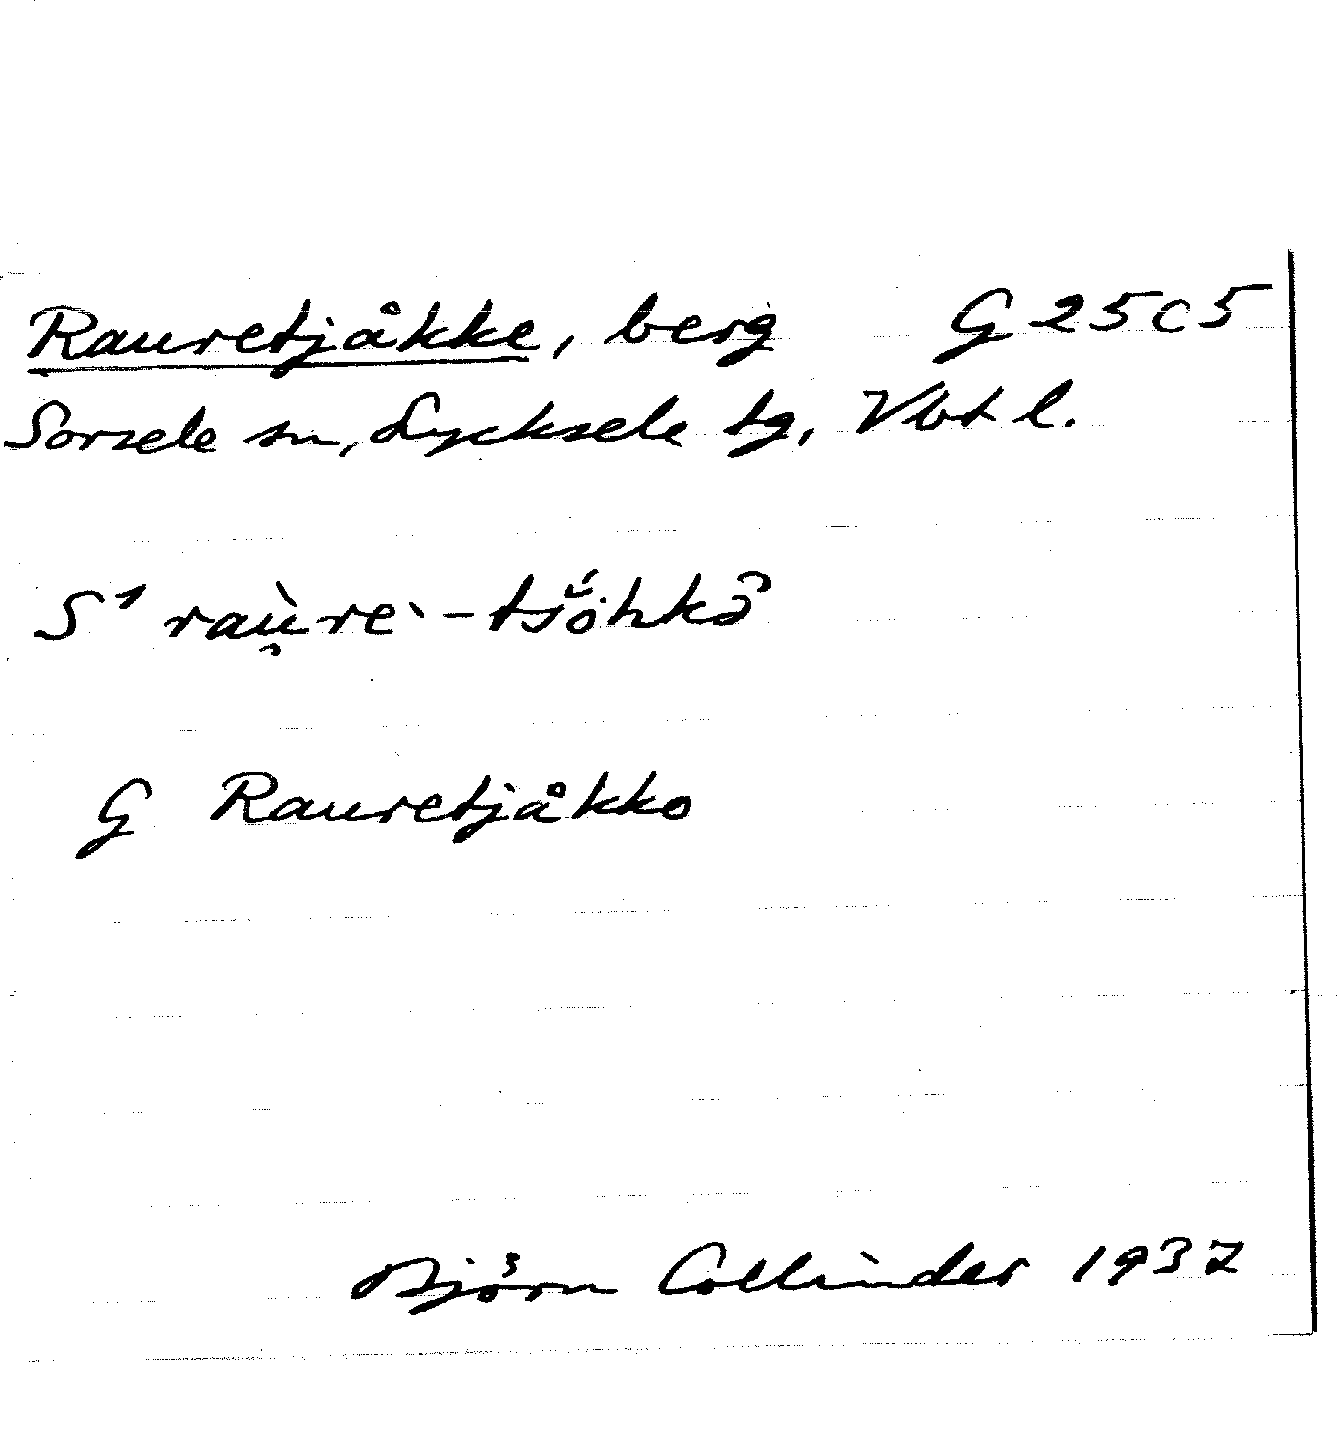 Rauretjåkke, berg G 25 c 5
Sorsele sn, Lycksele tg, Vbt l.
S1
G Rauretjåkko
Björn Collinder 1937